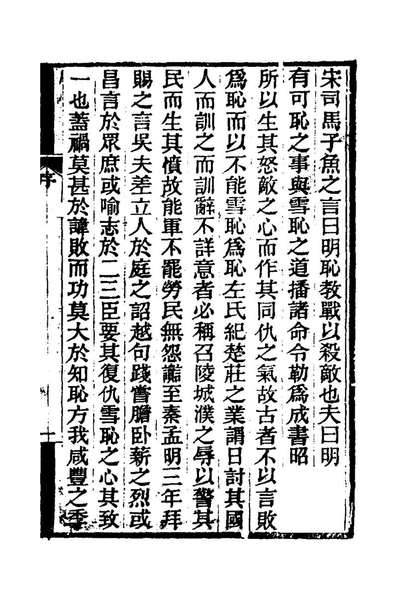 宋司馬子魚之言曰明恥教戰以殺敵也夫曰明
有可恥之事與雪恥之道播諸命令勒爲成書昭
所以生其怒敵之心而作其同仇之氣故古者不以言敗
爲恥而以不能雪恥爲恥左氏紀楚莊之業謂日討其國
人而訓之而訓辭不詳意者必稱召陵城濮之辱以警其
民而生其憤故能軍不罷勞民無怨讟至秦孟明三年拜
賜之言吳夫差立人於庭之詔越句踐嘗膽卧薪之烈或
昌言於眾庶或喻志於二三臣要其復仇雪恥之心其致
一也蓋禍莫甚於諱敗而功莫大於知恥方我咸豐之季
序
一